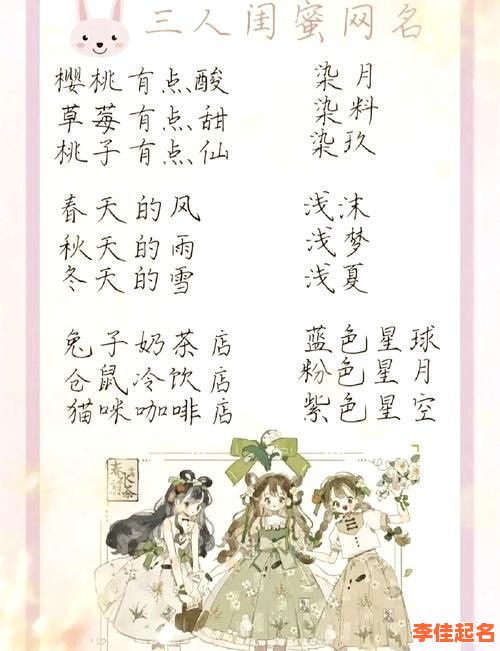 三人闺蜜网名
樱桃有点酸
草莓有点甜
桃子有点仙
染月
染料
染玖
春天的风
秋天的雨
冬天的雪
浅沫
浅梦
浅夏
兔子奶茶店
仓鼠冷饮店
猫咪咖啡店
蓝色星球
粉色星月
紫色星空
李佳起名